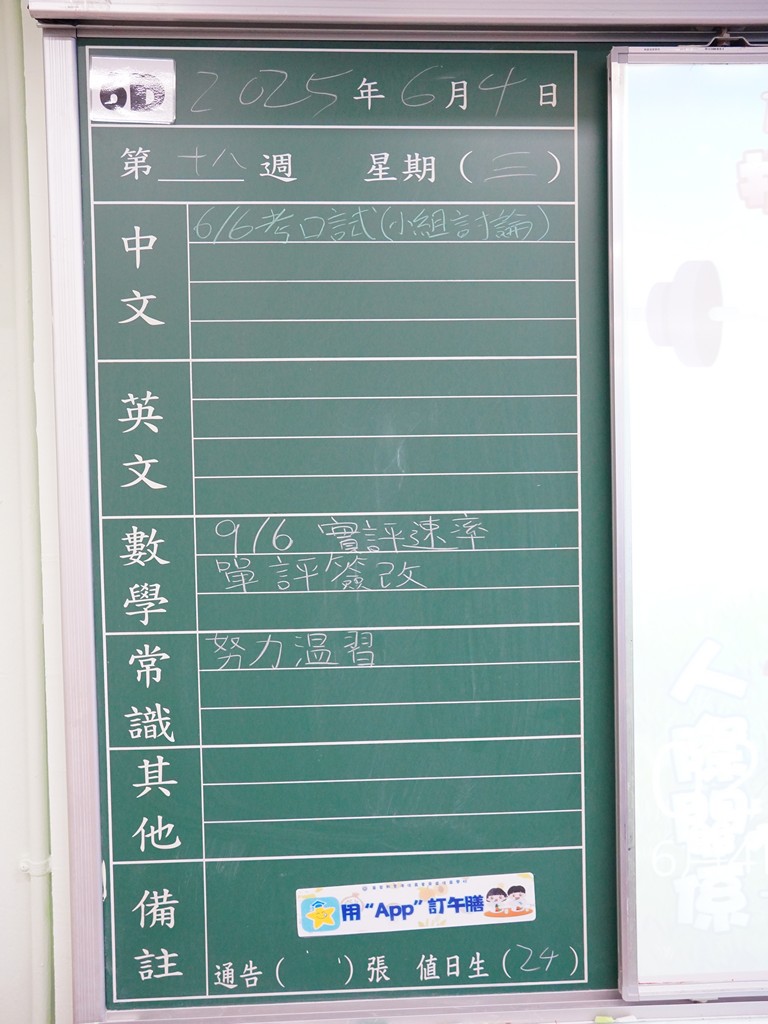 6D 2025年6月4日
第十八週 星期(三)
中文
6/6考口試(小組討論)
英文
數學
9/6 實評速率
單評簽改
常識
努力温習
其他
備註
用“App”訂午膳
通告( )張 值日生(24)
人際關係